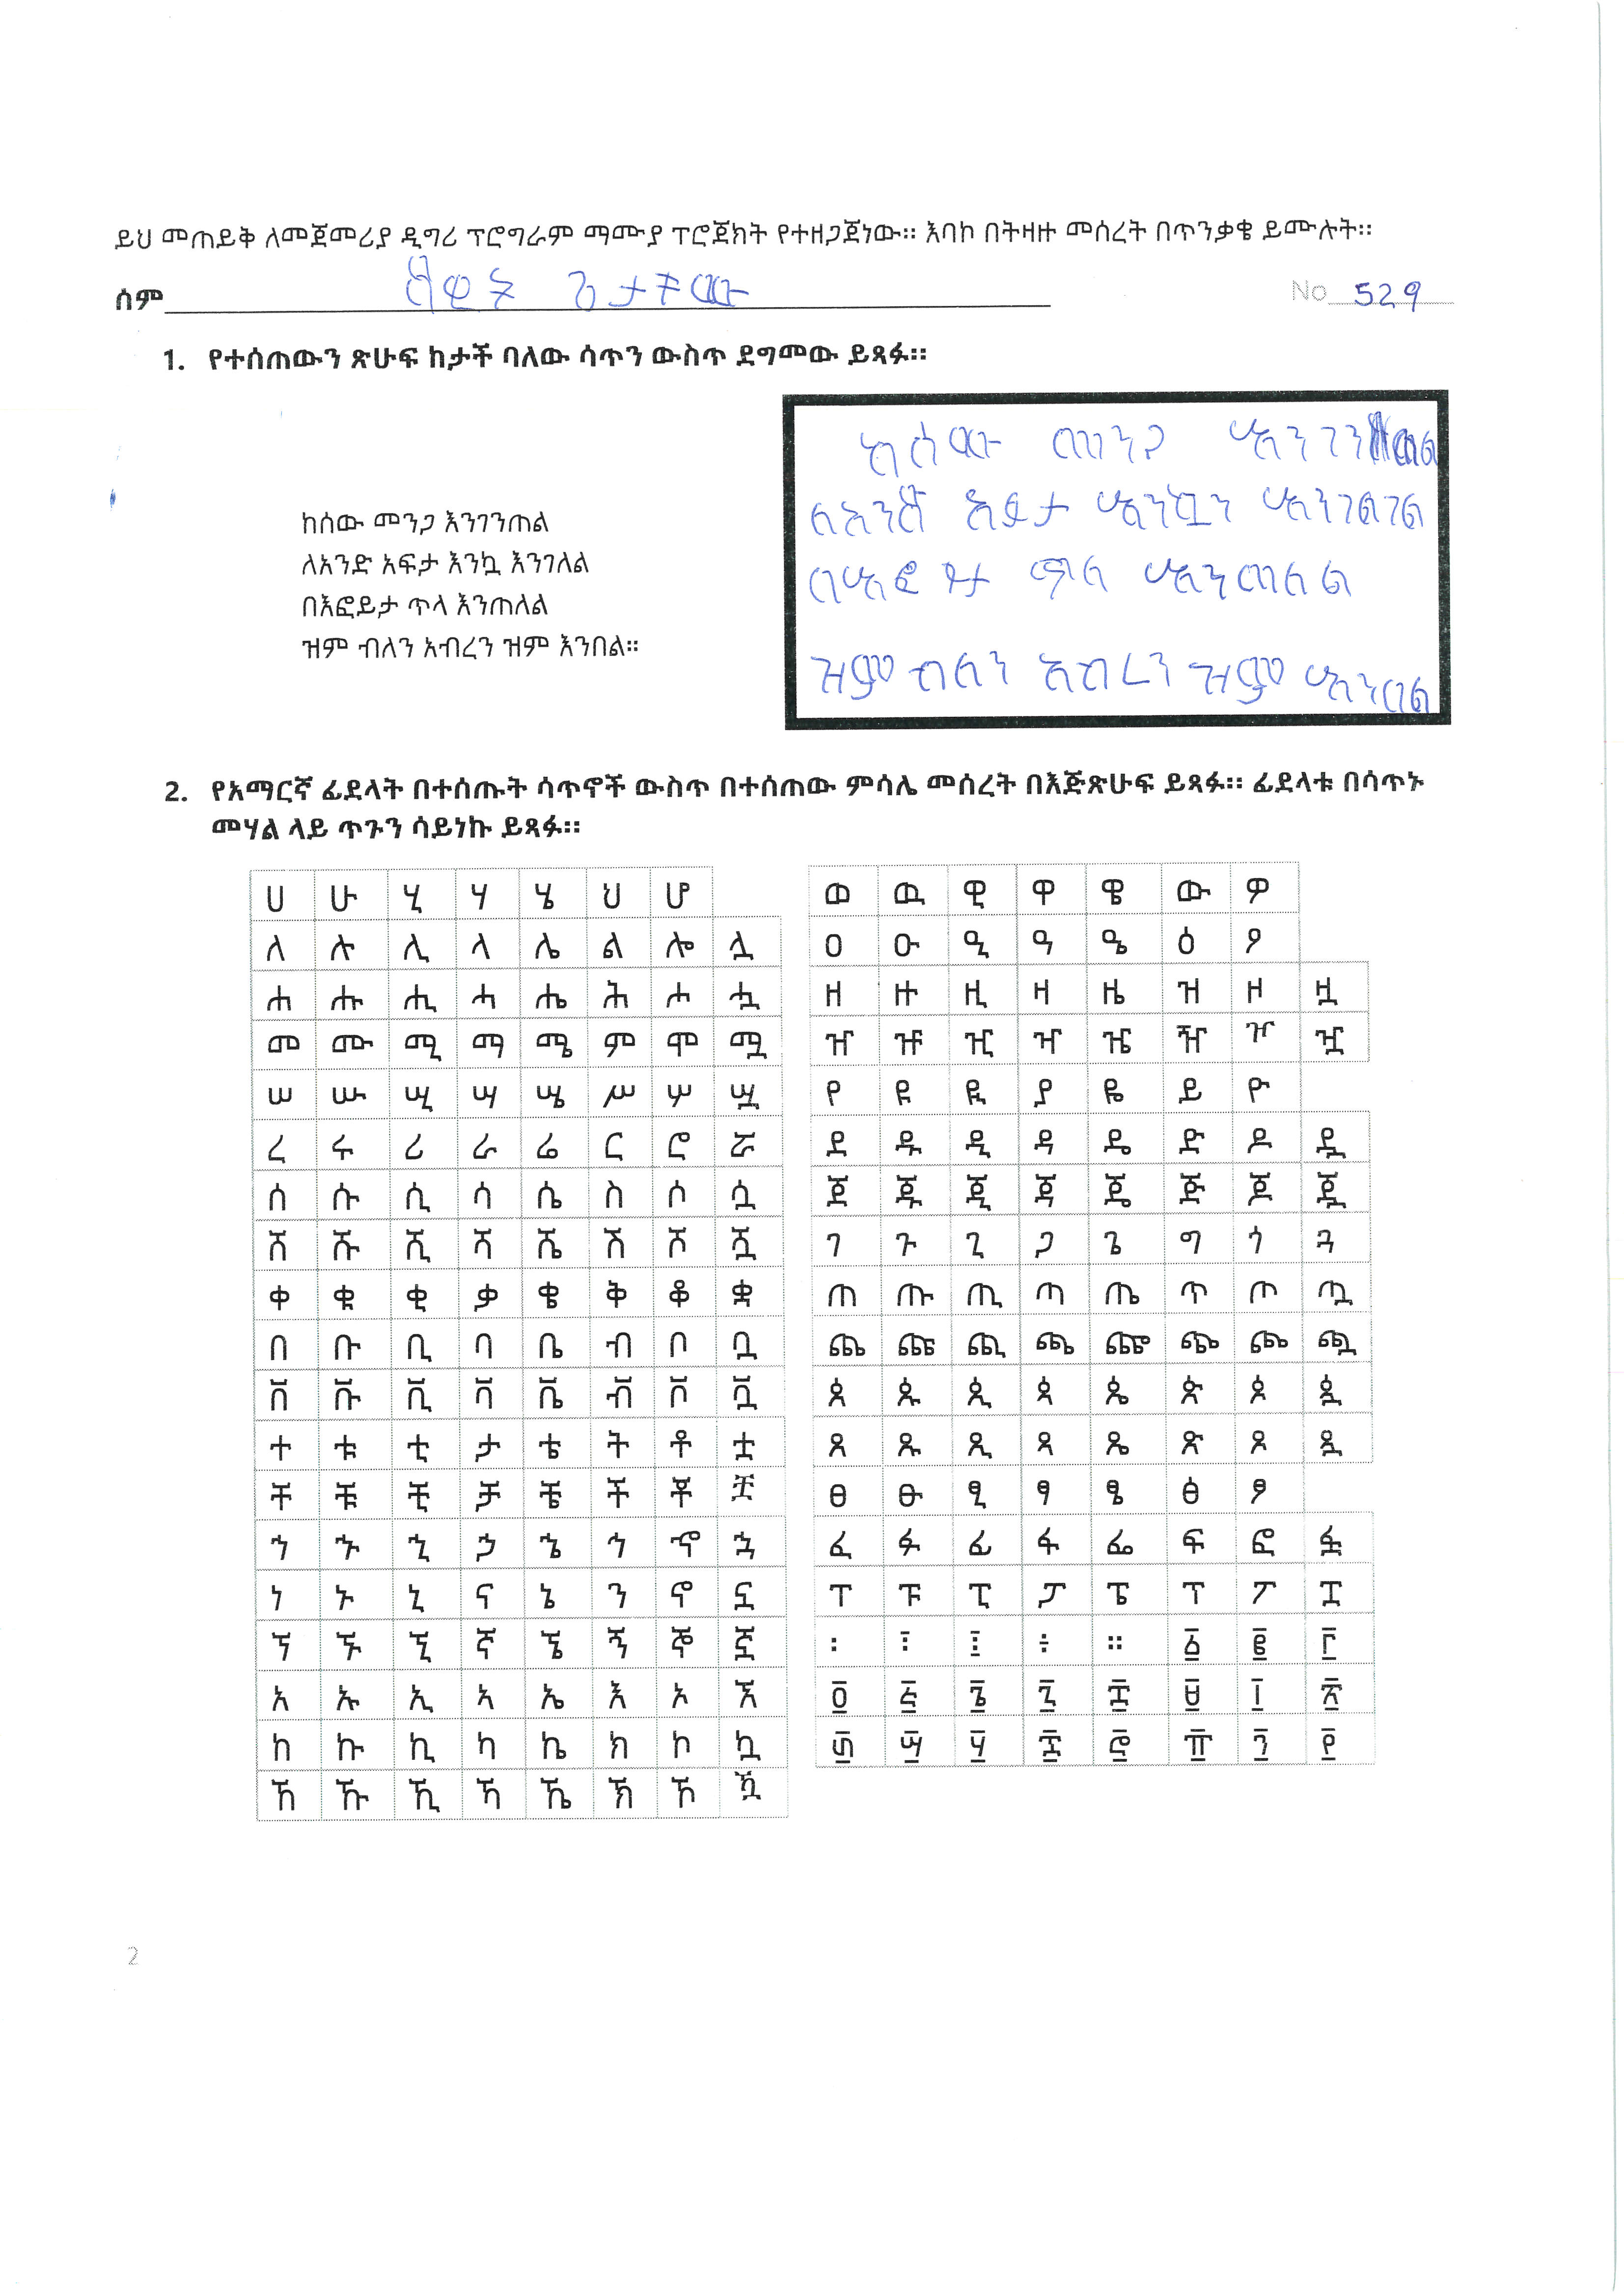 ይህ መጠይቅ ለመጀመሪያ ዲግሪ ፕሮግራም ማሙያ ፕሮጀክት የተዘጋጀነው። እባኮ በትዛዙ መሰረት በጥንቃቄ ይሙሉት።
ሰም ጌታቸው No 529
1. የተሰጠውን ጽሁፍ ከታች ባለው ሳጥን ውስጥ ደግመው ይጻፉ።
ከሰው መንጋ እንገንጠል
ለአንድ አፍታ እንኳ እንገለል
በእፎይታ ጥላ እንጠለል
ዝም ብለን አብረን ዝም እንበል።
ከሰው መንጋ እንገንጠል
ለአንድ አፍታ እንኳን እንገልገል
በእፎይታ ጥለ እንጠለል
ዝም ብለን አብረን ዝም እንበል
2. የአማርኛ ፊደላት በተሰጡት ሳጥኖች ውስጥ በተሰጠው ምሳሌ መሰረት በእጅጽሁፍ ይጻፉ። ፊደላቱ በሳጥኑ
መሃል ላይ ጥጉን ሳይነኩ ይጻፉ።
ሀ ሁ ሂ ሃ ሄ ህ ሆ
ለ ሉ ሊ ላ ሌ ል ሎ ሏ
ሐ ሑ ሒ ሓ ሔ ሕ ሖ ሗ
መ ሙ ሚ ማ ሜ ም ሞ ሟ
ሠ ሡ ሢ ሣ ሤ ሥ ሦ ሧ
ረ ሩ ሪ ራ ሬ ር ሮ ሯ
ሰ ሱ ሲ ሳ ሴ ስ ሶ ሷ
ሸ ሹ ሺ ሻ ሼ ሽ ሾ ሿ
ቀ ቁ ቂ ቃ ቄ ቅ ቆ ቋ
በ ቡ ቢ ባ ቤ ብ ቦ ቧ
ቨ ቩ ቪ ቫ ቬ ቭ ቮ ቯ
ተ ቱ ቲ ታ ቴ ት ቶ ቷ
ቸ ቹ ቺ ቻ ቼ ች ቾ ቿ
ኀ ኁ ኂ ኃ ኄ ኅ ኆ ኋ
ነ ኑ ኒ ና ኔ ን ኖ ኗ
ኘ ኙ ኚ ኛ ኜ ኝ ኞ ኟ
አ ኡ ኢ ኣ ኤ እ ኦ ኧ
ከ ኩ ኪ ካ ኬ ክ ኮ ኳ
ኸ ኹ ኺ ኻ ኼ ኽ ኾ ዃ
ወ ዉ ዊ ዋ ዌ ው ዎ
ዐ ዑ ዒ ዓ ዔ ዕ ዖ
ዘ ዙ ዚ ዛ ዜ ዝ ዞ ዟ
ዠ ዡ ዢ ዣ ዤ ዥ ዦ ዧ
የ ዩ ዪ ያ ዬ ይ ዮ
ደ ዱ ዲ ዳ ዴ ድ ዶ ዷ
ጀ ጁ ጂ ጃ ጄ ጅ ጆ ጇ
ገ ጉ ጊ ጋ ጌ ግ ጎ ጓ
ጠ ጡ ጢ ጣ ጤ ጥ ጦ ጧ
ጨ ጩ ጪ ጫ ጬ ጭ ጮ ጯ
ጰ ጱ ጲ ጳ ጴ ጵ ጶ ጷ
ጸ ጹ ጺ ጻ ጼ ጽ ጾ ጿ
ፀ ፁ ፂ ፃ ፄ ፅ ፆ
ፈ ፉ ፊ ፋ ፌ ፍ ፎ ፏ
ፐ ፑ ፒ ፓ ፔ ፕ ፖ ፗ
፡ ፣ ፤ ÷ ። ፩ ፪ ፫
፬ ፭ ፮ ፯ ፰ ፱ ፲ ፳
፴ ፵ ፶ ፷ ፸ ፹ ፺ ፻
2